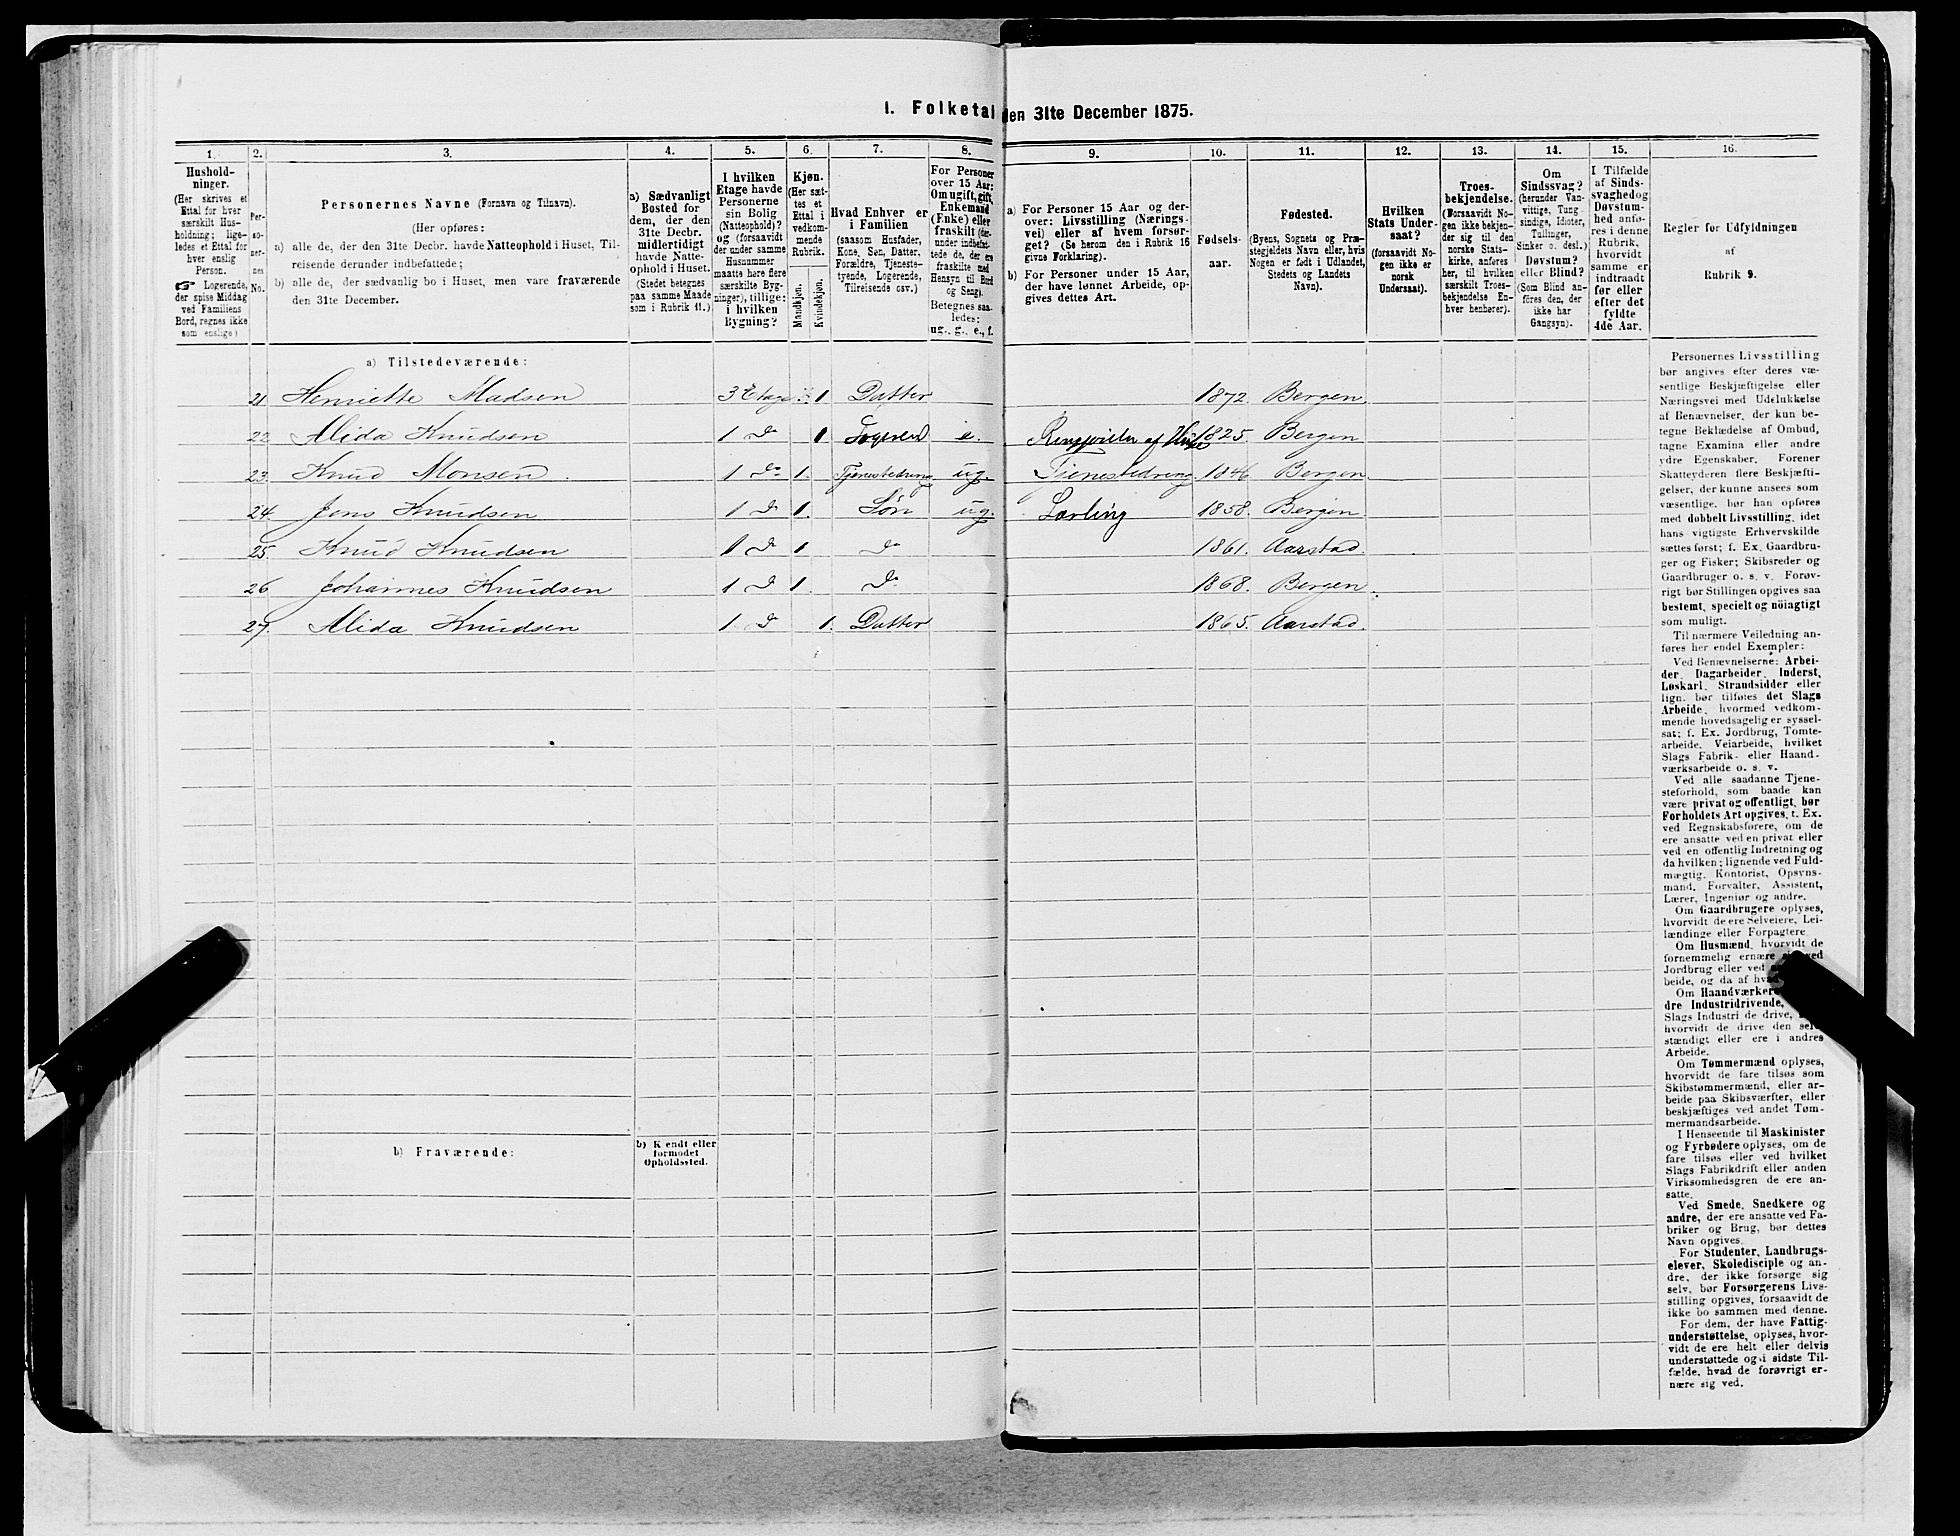 1. Folketal den 31te December 1875.
1. 2. 3. 4. 5. 6. 7. 8. 9. 10. 11. 12. 13. 14. 15. 16.
Hushold-
ninger.
(Her skrives et
Ettal for hver
særskilt Hus-
holdning; lige-
ledes et Ettal for
hver enslig
Person.
☞ Logerende,
der spise Middag
ved Familiens
Bord, regnes ikke
som enslige)
Per-
so-
ner-
nes
No.
Personernes Navne (Fornavn og Tilnavn).
(Her opføres:
a) alle de, der den 31te Decbr. havde Natteophold i Huset, Til-
reisende derunder indbefattede;
b) alle de, der sædvanlig bo i Huset, men vare fraværende
den 31te December.
a) Sædvanligt
Bosted for
dem, der den
31te Decbr.
midlertidigt
havde Natte-
ophold i Huset.
(Stedet betegnes
paa samme Maade
som i Rubrik 11.)
I hvilken
Etage havde
Personerne
sin Bolig
(Natteophold)?
og (forsaavidt
der under samme
Husnummer
maatte høre flere
særskilte Byg-
ninger), tillige:
i hvilken
Bygning?
Kjøn.
(Her sæt-
tes et
Ettal i
vedkom-
mende
Rubrik.
Mandkjøn.
Kvindekjøn.
Hvad Enhver er
i Familien
(saasom Husfader,
Kone, Søn, Datter,
Forældre, Tjeneste-
tyende, Logerende,
Tilreisende osv.)
For Personer
over 15 Aar:
Om ugift, gift,
Enkemand
(Enke) eller
fraskilt (der-
under indbefat-
tede de, der ere
fraskilte med
Hensyn til Bord
og Seng).
Betegnes saa-
ledes:
ug., g., e., f.
a) For Personer 15 Aar og der-
over: Livsstilling (Nærings-
vei) eller af hvem forsør-
get? (Se herom den i Rubrik 16
givne Forklaring).
b) For Personer under 15 Aar,
der have lønnet Arbeide, op-
gives dettes Art.
Fødsels-
aar.
Fødested.
(Byens, Sognets og Præ-
stegjeldets Navn eller, hvis
Nogen er født i Udlandet,
Stedets og Landets
Navn).
Hvilken
Stats Under-
saat?
(forsaavidt No-
gen ikke er
norsk
Undersaat).
Troes-
bekjendelse.
(Forsaavidt No-
gen ikke bekjen-
der sig til den
norske Stats-
kirke, anføres
her, til hvilken
særskilt Troes-
bekjendelse En-
hver henhører).
Om
Sindssvag?
(herunder Van-
vittige, Tung
sindige, Idioter,
Tullinger,
Sinker o. desl.)
Døvstum?
eller Blind?
(Som Blind an-
føres den, der
ikke har
Gangsyn).
I Tilfælde
af Sinds-
svaghed og
Døvstum-
hed anfø-
res i denne
Rubrik,
hvorvidt
samme er
indtraadt
før eller
efter det
fyldte
4de Aar.
Regler for Udfyldningen
af
Rubrik 9.
a) Tilstedeværende:
21 Henriette Madsen 3 Etage 1 Datter 1872. Bergen.
22 Alida Knudsen 1 Do 1 e. 1825. Bergen
23. Knud Monsen 1 Do 1. Tjenestedreng ug. Tjenestedreng 1846 Bergen.
24. Jens Knudsen 1 Do 1. Søn ug. Lærling 1858. Bergen
25 Knud Knudsen 1 Do 1 Do 1861. Aarstad.
26 Johannes Knudsen 1 Do 1. Do 1868. Bergen.
27. Alida Knudsen 1 Do 1. Datter 1865. Aarstad.
b) Fraværende:
b) Kendt eller
formodet
Opholdssted.
Personernes Livsstilling
bør angives efter deres væ-
sentlige Beskjæftigelse eller
Næringsvei med Udelukkelse
af Benævnelser, der kun be-
tegne Beklædelse af Ombud,
tagne Examina eller andre
ydre Egenskaber. Forener
Skatteyderen flere Beskjæfti-
gelser, der kunne ansees som
væsentlige, bør han opføres
med dobbelt Livsstilling, idet
hans vigtigste Erhvervskilde
sættes først; f. Ex. Gaardbru-
ger og Fisker; Skibsreder og
Gaardbruger o. s. v. Forøv-
rigt bør Stillingen opgives saa
bestemt, specielt og nöiagtigt
som muligt.
Til nærmere Veiledning an-
føres her endel Exempler:
Ved Benævnelserne: Arbei-
der, Dagarbeider, Inderst,
Løskarl, Strandsidder eller
lign. bør tilføies det Slags
Arbeide, hvormed vedkom-
mende hovedsagelig er syssel-
sat; f. Ex. Jordbrug, Tomte-
arbeide, Veiarbeide, hvilket
Slags Fabrik- eller Haand-
værksarbeide o. s. v.
Ved alle saadanne Tjene-
steforhold, som baade kan
være privat og offentligt, bør
Forholdets Art opgives, t. Ex.
ved Regnskabsførere, om de
ere ansatte ved en privat eller
ved en offentlig Indretning og
da hvilken; lignende ved Fuld-
mægtig, Kontorist, Opsyns-
mand, Forvalter, Assistent,
Lærer, Ingeniør og andre.
Om Gaardbrugere oplyses,
hvorvidt de ere Selveiere, Lei-
lændinge eller Forpagtere.
Om Husmænd, hvorvidt de
fornemmelig ernære sig ved
Jordbrug eller ved
beide, og da af
Om Haandværkere
dre Industridrivende,
Slags Industri de drive,
hvorvidt de drive den selv-
stændigt eller ere i andres
Arbeide.
Om Tømmermænd oplyses,
hvorvidt de fare tilsøs som
Skibstømmermænd, eller ar-
beide paa Skibsværfter, eller
beskjæftiges ved andet Tøm-
mermandsarbeide.
I Henseende til Maskinister
og Fyrbødere oplyses, om de
fare tilsøs eller ved hvilket
Slags Fabrikdrift eller anden
Virksomhedsgren de ere an-
satte.
Ved Smede, Snedkere og
andre, der ere ansatte ved Fa-
briker og Brug, bør dettes
Navn opgives.
For Studenter, Landbrugs-
elever, Skoledisciple og an-
dre, der ikke forsørge sig
selv, bør Forsørgerens Livs-
stilling opgives, forsaavidt de
ikke bo sammen med denne.
For dem, der have Fattig-
understøttelse, oplyses, hvor-
vidt de ere helt eller delvis
understøttede og i sidste Til-
fælde, hvad de forøvrigt er-
nære sig ved.